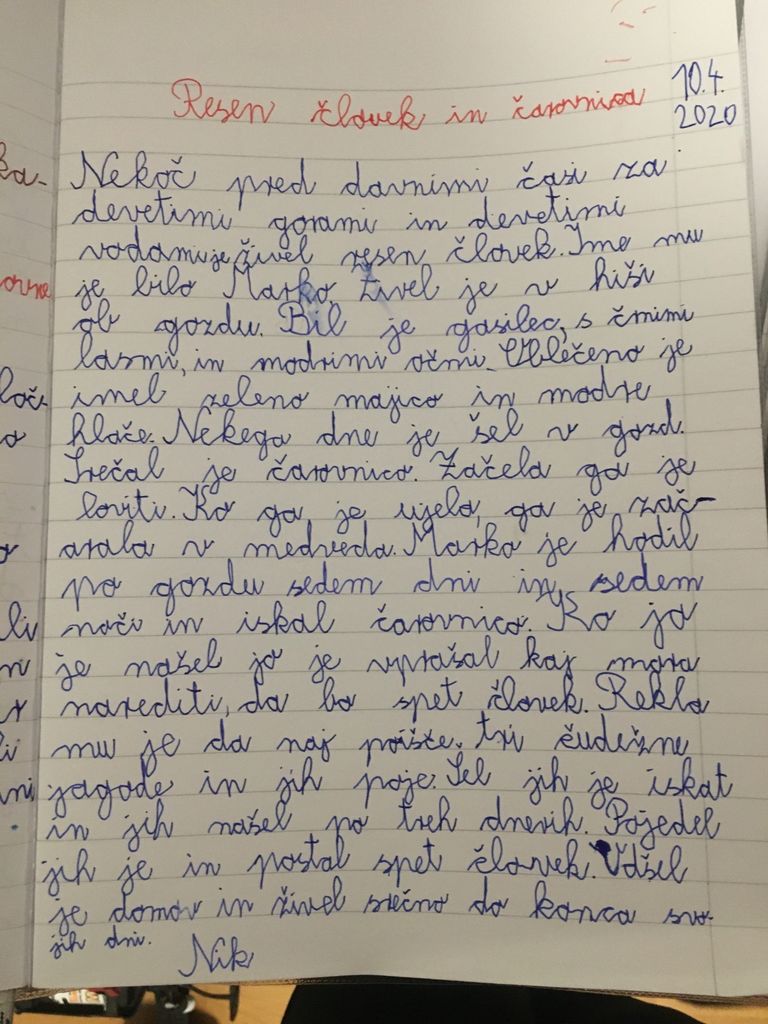 Resen človek in čarovnica
10.4.
2020
Nekoč pred davnimi časi za
devetimi gorami in devetimi
vodami je živel resen človek. Ime mu
je bilo Marko. Živel je v hiši
ob gozdu. Bil je gasilec, s črnimi
lasmi, in modrimi očmi. Oblečeno je
imel zeleno majico in modre
hlače. Nekega dne je šel v gozd.
Srečal je čarovnico. Začela ga je
loviti. Ko ga je ujela, ga je zač-
arala v medveda. Marko je hodil
po gozdu sedem dni in sedem
noči in iskal čarovnico. Ko jo
je našel jo je vprašal kaj mora
narediti, da bo spet človek. Rekla
mu je da naj poišče tri čudežne
jagode in jih poje. Šel jih je iskat
in jih našel po treh dnevih. Pojedel
jih je in postal spet človek. Odšel
je domov in živel srečno do konca svo-
jih dni.
Nik